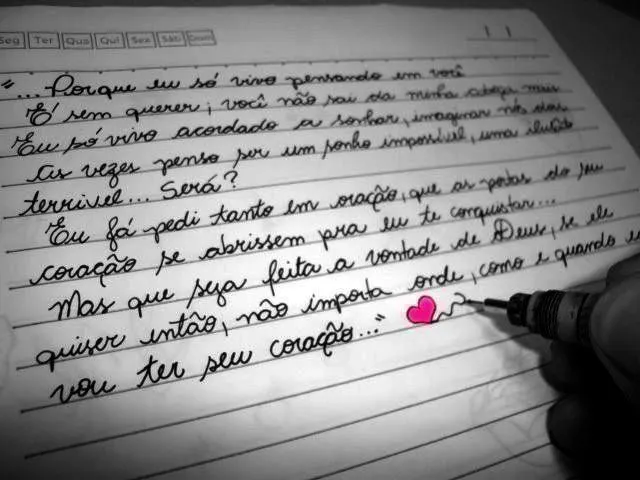 Seg Ter Qua Qui Sex Sáb Dom
"...Porque eu só vivo pensando em você
É sem querer; você não sai da minha cabeça mais
Eu só vivo acordado a sonhar, imaginar nós dois
As vezes penso ser um sonho impossível, uma ilusão
terrivel... Será?
Eu já pedi tanto em oração, que as portas do seu
coração se abrissem pra eu te conquistar...
Mas que seja feita a vontade de Deus, se ele
quiser então, não importa onde, como e quando e
vou ter seu coração..."